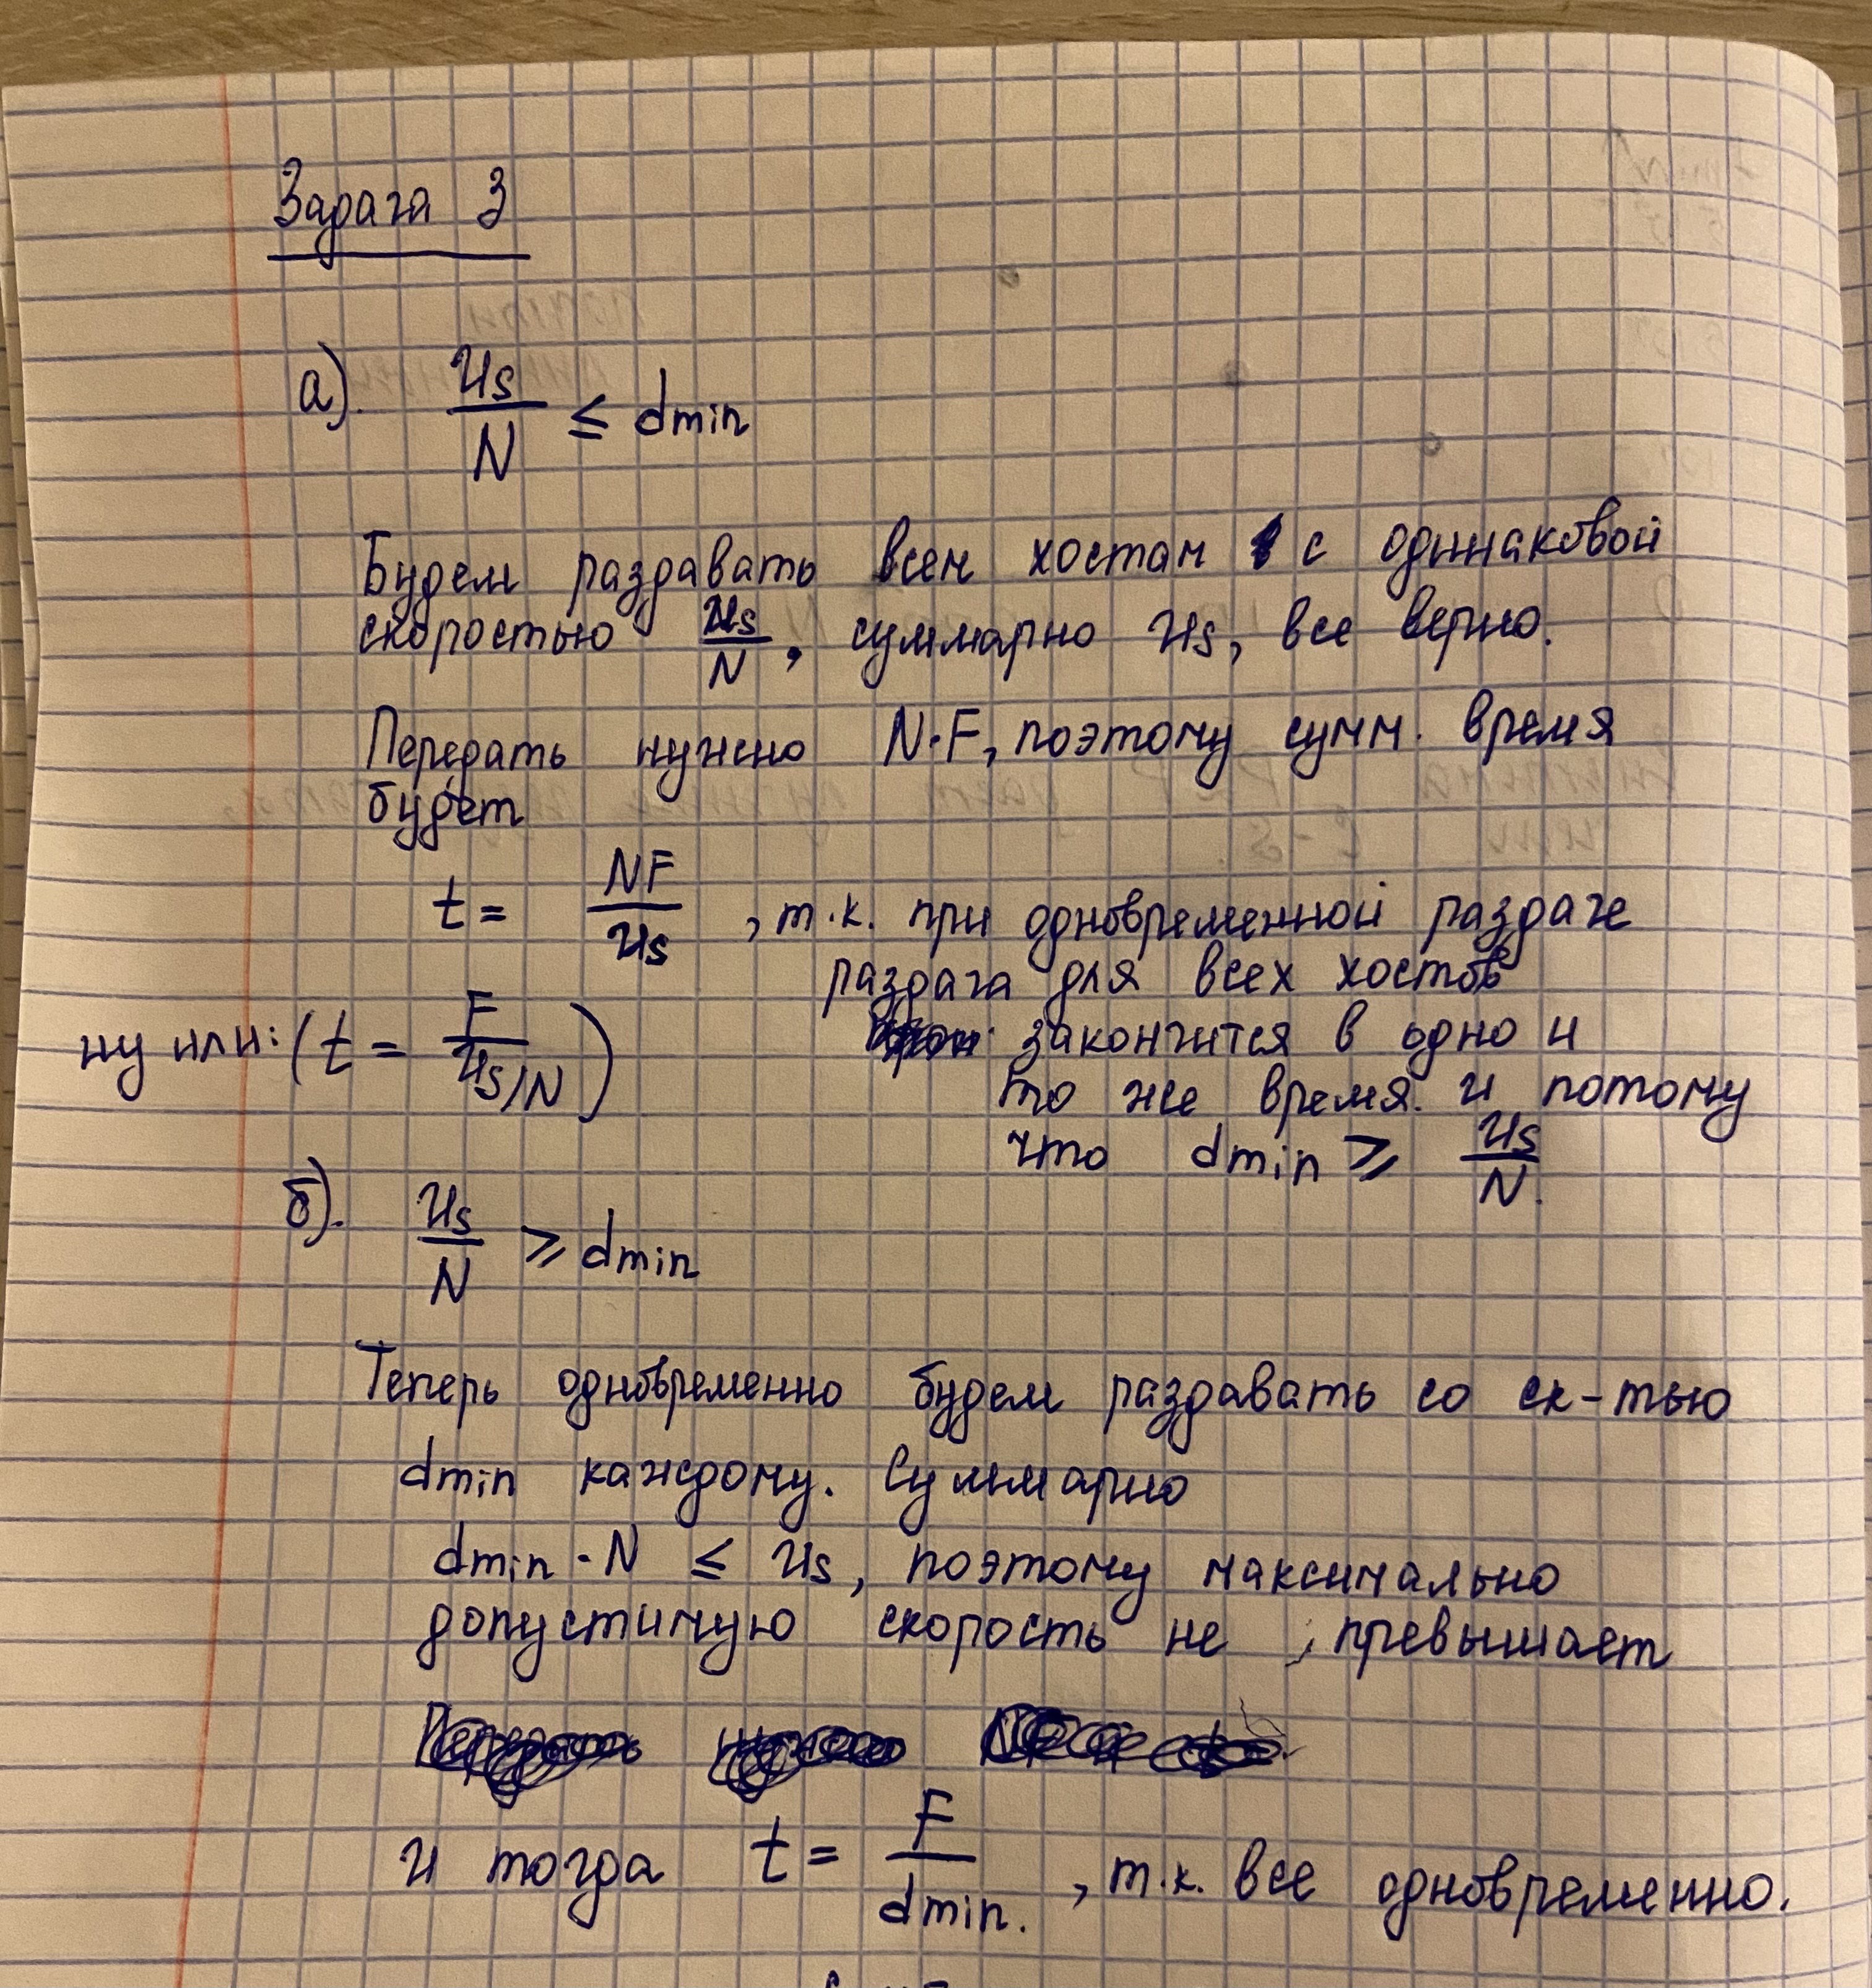 Задача 3
а). us/N ≤ dmin
Будем раздавать всем хостам с одинаковой
скоростью us/N, суммарно us, все верно.
Передать нужно N·F, поэтому сумм. время
будет
t = NF/us , т.к. при одновременной раздаче
раздача для всех хостов
закончится в одно и
то же время. и потому
что dmin ≥ us/N.
ну или: (t = F/us/N)
б). us/N ≥ dmin
Теперь одновременно будем раздавать со ск-тью
dmin каждому. Суммарно
dmin · N ≤ us, поэтому максимально
допустимую скорость не превышает
и тогда t = F/dmin. , т.к. все одновременно.